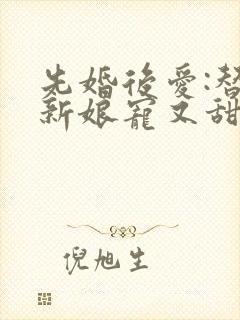 先婚後愛:替
新娘寵又甜
倪旭生